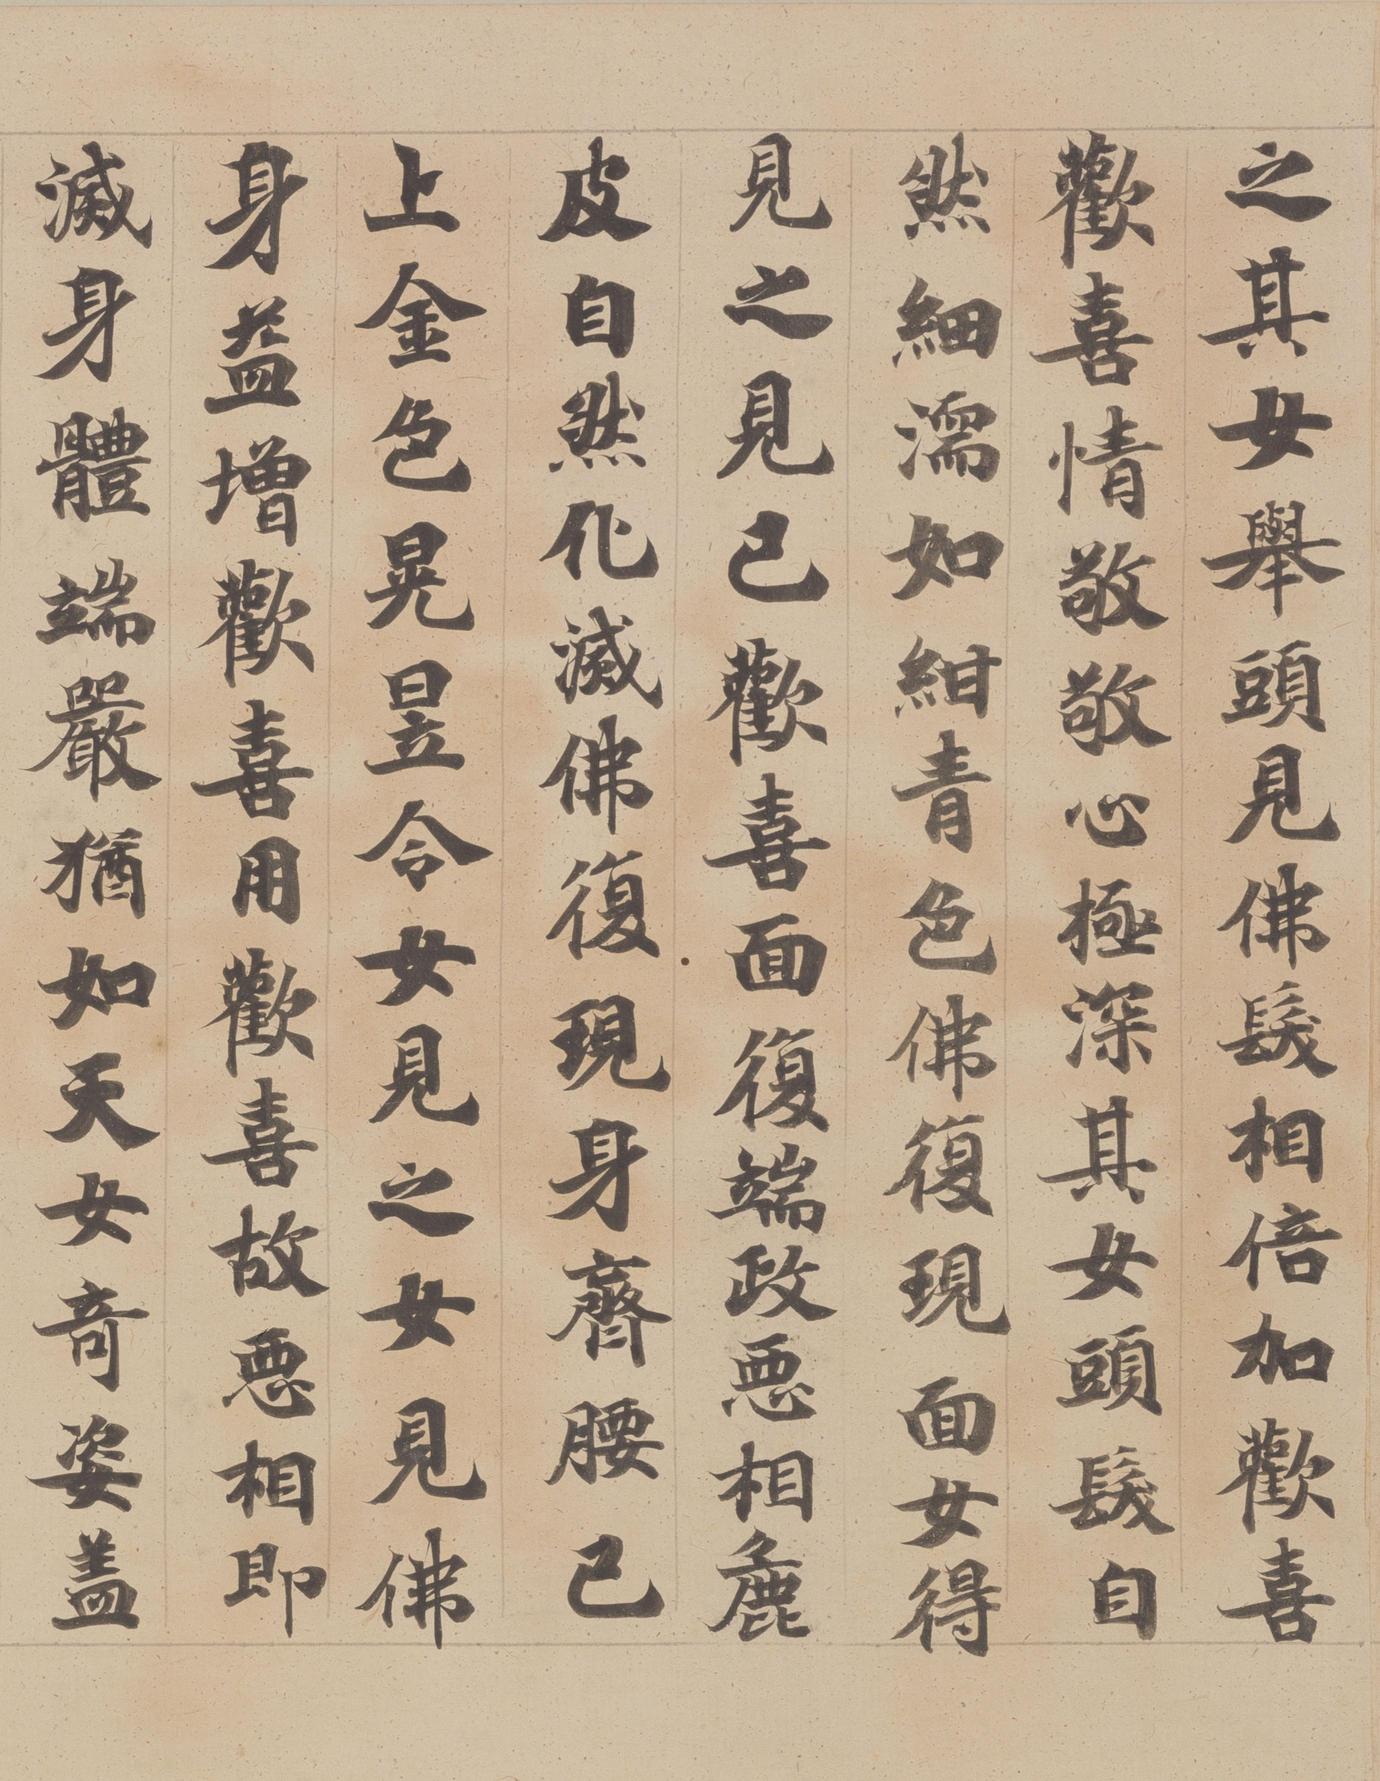 之其女舉頭見佛髮相倍加歡喜
歡喜情敬敬心極深其女頭髮自
然細濡如紺青色佛復現面女得
見之見已歡喜面復端政惡相麁
皮自然化滅佛復現身齊腰已
上金色晃昱令女見之女見佛
身益增歡喜用歡喜故惡相即
滅身體端嚴猶如天女奇姿蓋